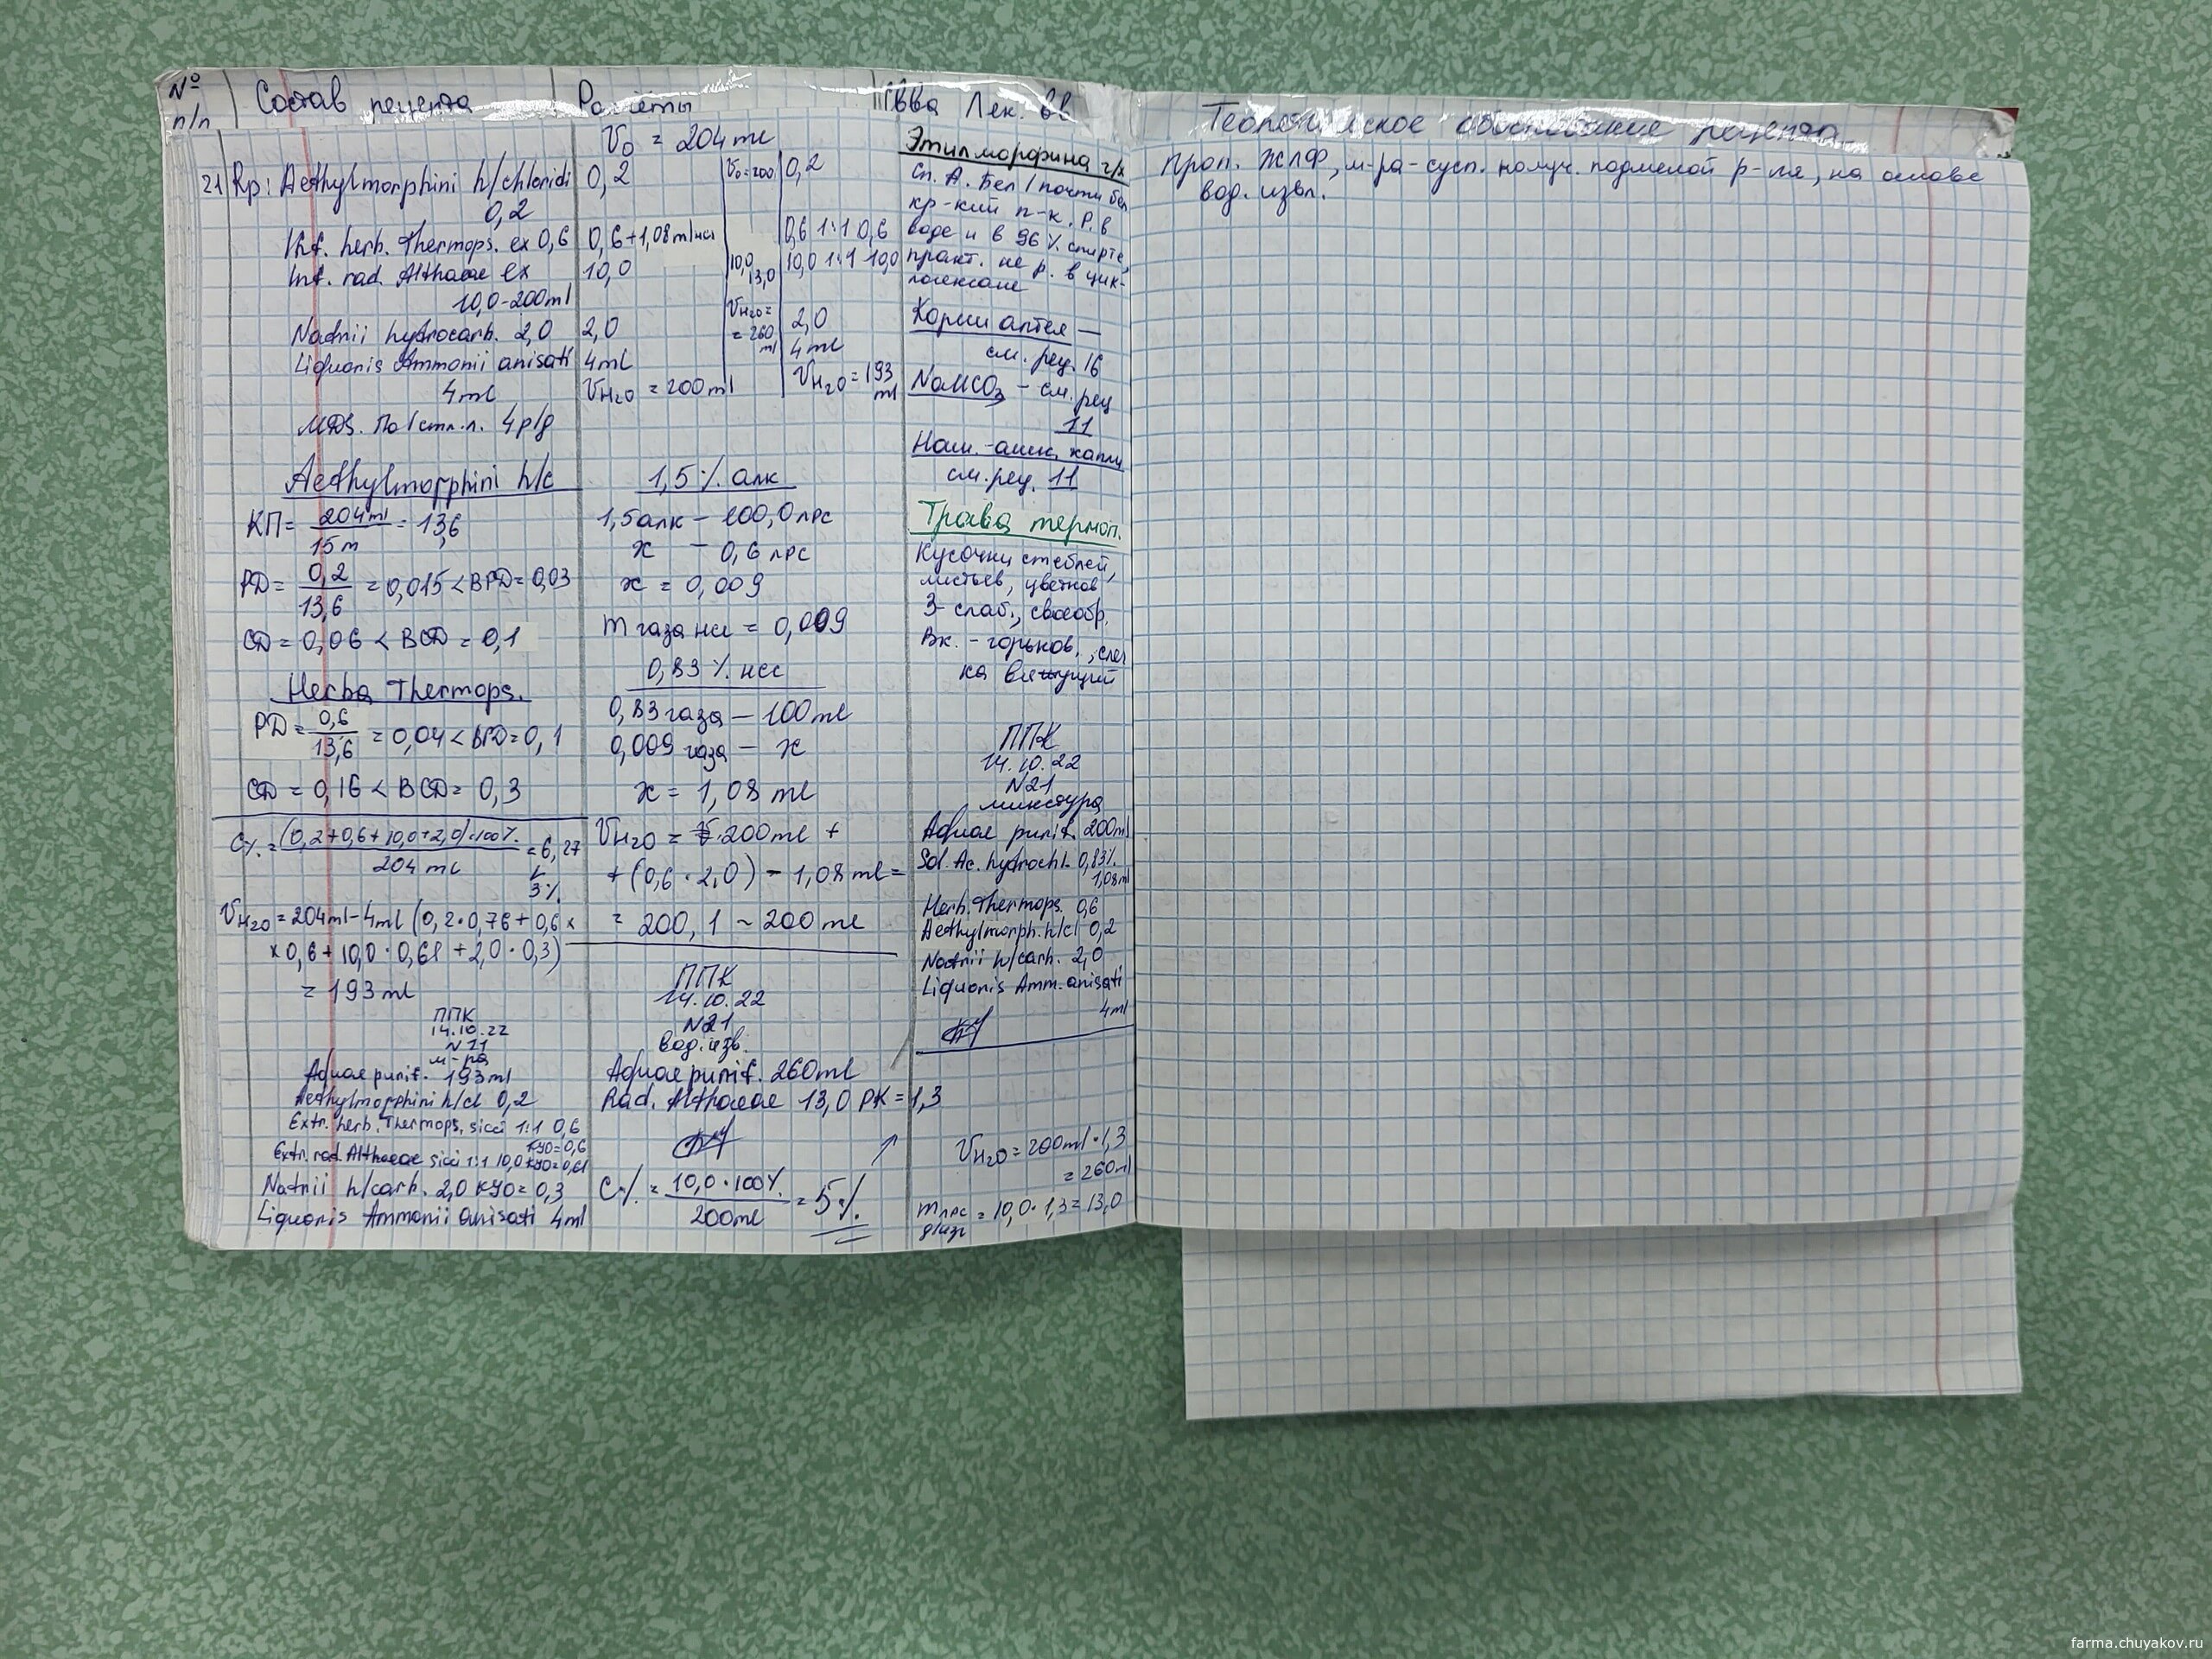 № п/п
Состав рецепта
Расчёты
Св-ва Лек. вв
Теоретическое обоснование рецепта
V₀ = 204 ml
21 Rp: Aethylmorphini h/chloridi
0,2
Inf. herb. Thermops. ex 0,6
Inf. rad. Althaeae ex
10,0-200ml
Natrii hydrocarb. 2,0
Liquoris Ammonii anisati
4ml
MDS. По 1 ст.л. 4 р/д
0,2
0,6+1,08ml нсл
10,0
2,0
4ml
V H₂O = 200ml
V₀=200
10,0
13,0
V H₂O =
= 260
ml
0,2
0,6 1:1 0,6
10,0 1:1 10,0
2,0
4ml
V H₂O = 193
ml
Aethylmorphini h/c
КП = 204ml / 15 m = 13,6
РD = 0,2 / 13,6 = 0,015 < ВРD = 0,03
СD = 0,06 < ВСD = 0,1
Herba Thermops.
РD = 0,6 / 13,6 = 0,04 < ВРD = 0,1
СD = 0,16 < ВСD = 0,3
С% = (0,2+0,6+10,0+2,0)·100% / 204 ml = 6,27
3%
V H₂O = 204ml-4ml (0,2·0,76 + 0,6 ×
× 0,6 + 10,0 · 0,61 + 2,0 · 0,3)
= 193 ml
ППК
14.10.22
N 21
м-ра
Aquae purif. 193 ml
Aethylmorphini h/cl 0,2
Extr. herb. Thermops. sicci 1:1 0,6
КУО=0,6
Extr. rad. Althaeae sicci 1:1 10,0 КУО=0,61
Natrii h/carb. 2,0 КУО = 0,3
Liquoris Ammonii anisati 4ml
1,5% алк
1,5 алк – 100,0 лрс
x – 0,6 лрс
x = 0,009
m газа нсl = 0,009
0,83% нсl
0,83 газа – 100 ml
0,009 газа – x
x = 1,08 ml
V H₂O = 200ml +
+ (0,6 · 2,0) – 1,08 ml =
= 200,1 ~ 200 ml
ППК
14.10.22
N21
вод. изв.
Aquae purif. 260ml
Rad. Althaeae 13,0 РК = 1,3
С% = 10,0 · 100% / 200ml = 5%
Этилморфина г/х
Сп. А. Бел / почти бел
кр-кий п-к. Р. в
воде и в 96% спирте,
практ. не р. в цик-
логексане
Корни алтея –
см. рец. 16
NaHCO₃ – см. рец
11
Наш.-анис. капли
см. рец. 11
Трава термоп.
Кусочки стеблей,
листьев, цветков
З- слаб., своеобр.
Вк. – горьков., слег
ка
ППК
14.10.22
N21
микстура
Aquae purif. 200ml
Sol. Ac. hydrochl. 0,83%
1,08ml
Herb. Thermops. 0,6
Aethylmorph. h/cl 0,2
Natrii h/carb. 2,0
Liquoris Amm. anisati
4ml
V H₂O = 200ml · 1,3
= 260ml
m лрс = 10,0 · 1,3 = 13,0
Проп. ЖЛФ, м-ра-сусп. получ. подменой р-ля, на основе
вод. извл.
farma.chuyakov.ru